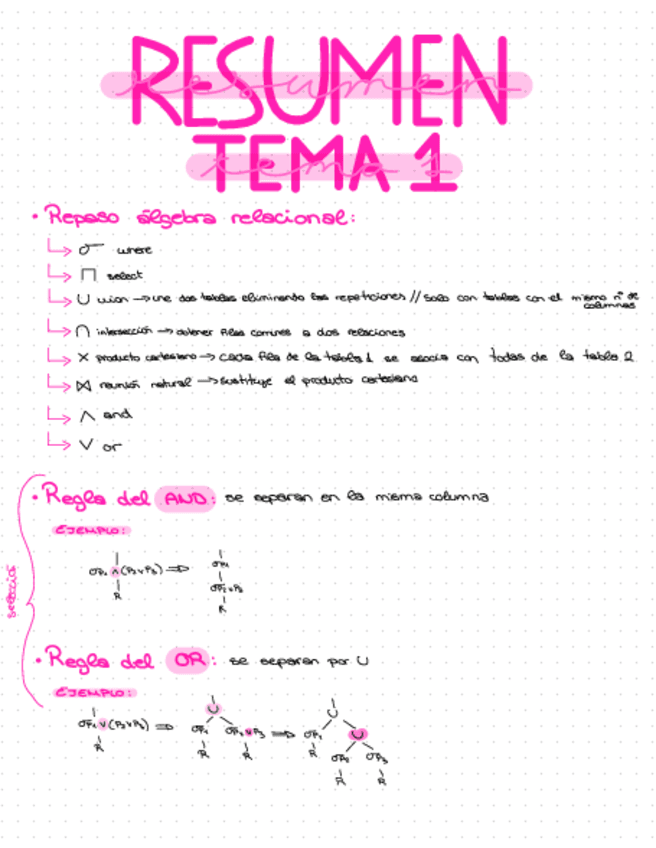 RESUMEN
resumen
TEMA 1
tema 1
• Repaso álgebra relacional:
↳ σ where
↳ ∏ select
↳ ∪ union → une dos tablas eliminando las repeticiones // Solo con tablas con el mismo nº de columnas
↳ ∩ intersección → obtener filas comunes a dos relaciones
↳ × producto cartesiano → cada fila de la tabla 1 se asocia con todas de la tabla 2
↳ ⋈ reunión natural → sustituye el producto cartesiano
↳ ∧ and
↳ ∨ or
selección
• Regla del AND: se separan en la misma columna
EJEMPLO:
σP₁ ∧ (P₂∨P₃) ⇒ σP₁
σP₂∨P₃
R R
• Regla del OR: se separan por ∪
EJEMPLO:
∪ ∪
σP₁ ∨ (P₂∨P₃) ⇒ σP₁ σP₂∨P₃ ⇒ σP₁ ∪
R R R R σP₂ σP₃
R R